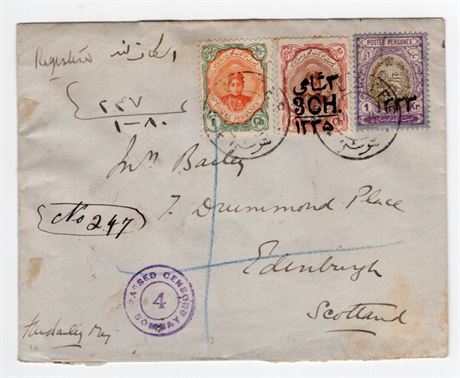 Registered
۲۴۷
۱-۸۰
POSTES PERSANES
1 Ch
۳ شاهی
3 CH.
۱۳۳۵
1
۱۳۳۳
Mrs Bailey
7. Drummond Place
Edinburgh
Scotland
No 247
PASSED CENSOR
4
BOMBAY